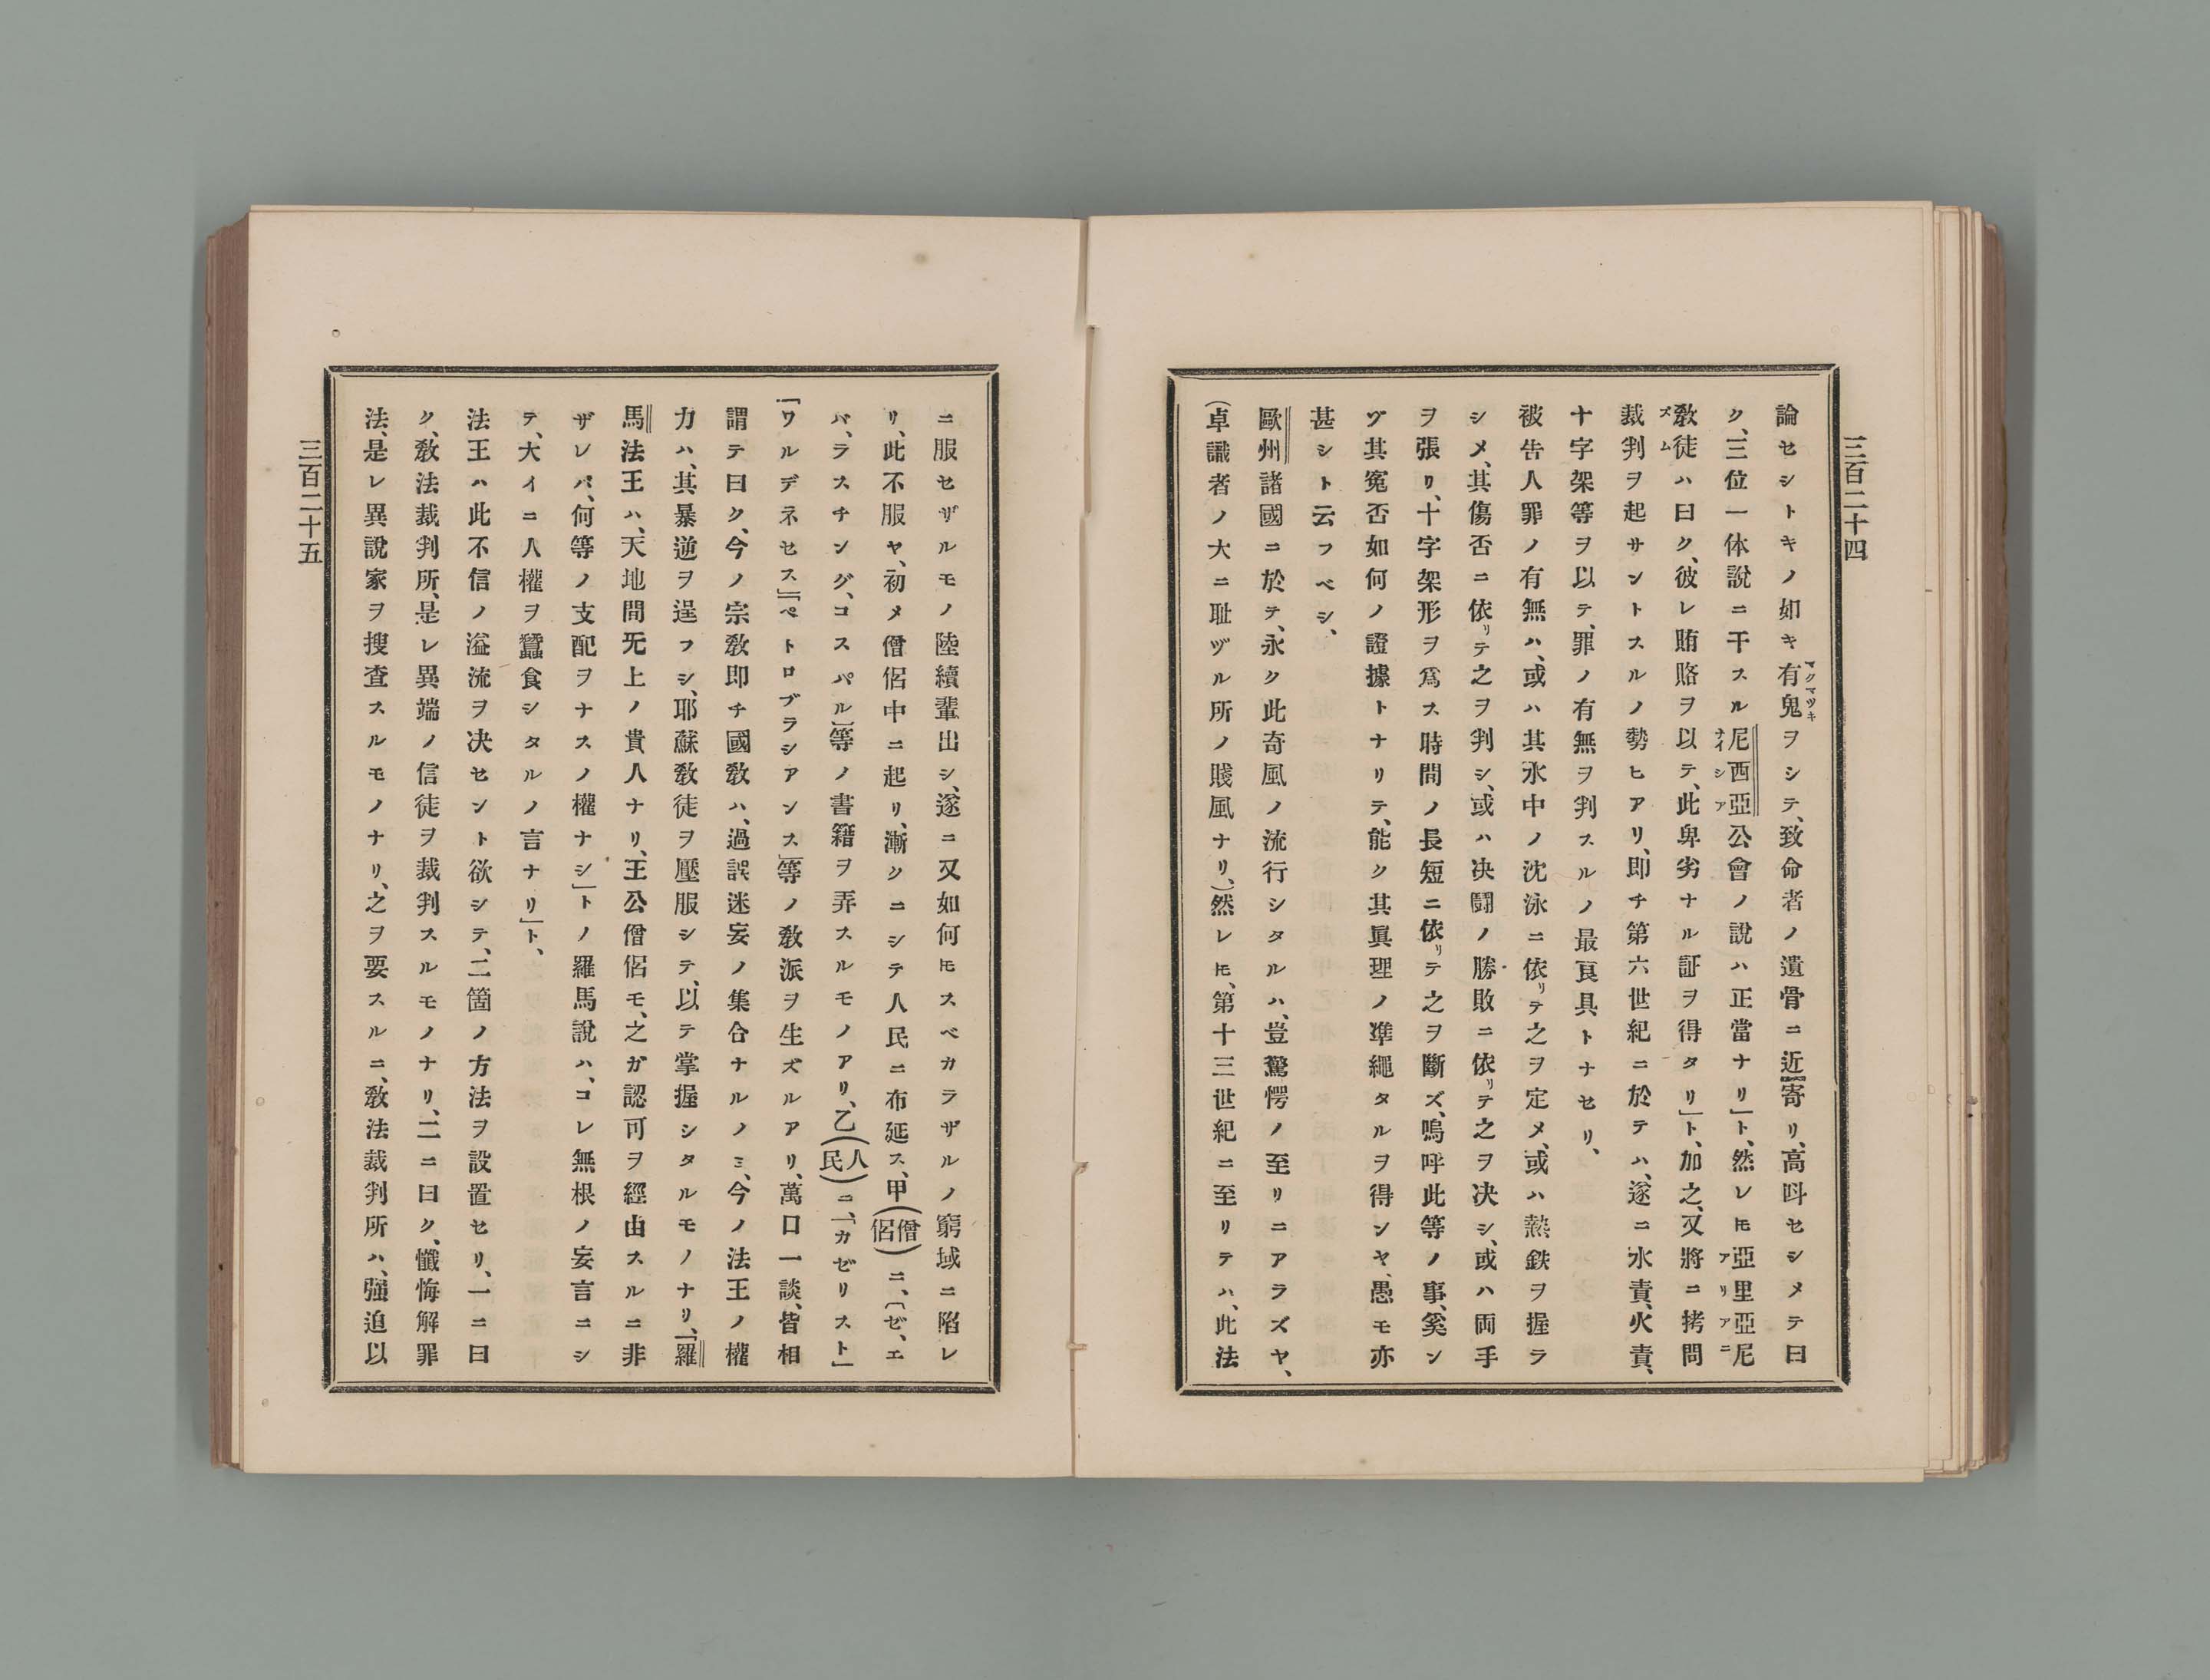 三百二十四
論セシトキノ如キ有鬼ヲシテ、致命者ノ遺骨ニ近寄リ、高呌セシメテ曰
ク、三位一体說ニ干スル尼西亞公會ノ說ハ正當ナリ」ト、然レ𪜈亞里亞尼
敎徒ハ曰ク、彼レ賄賂ヲ以テ、此卑劣ナル証ヲ得タリ」ト、加之、又將ニ拷問
裁判ヲ起サントスルノ勢ヒアリ、即チ第六世紀ニ於テハ、遂ニ水責、火責、
十字架等ヲ以テ、罪ノ有無ヲ判スルノ最良具トナセリ、
被告人罪ノ有無ハ、或ハ其水中ノ沈泳ニ依リテ之ヲ定メ、或ハ熱鉄ヲ握ラ
シメ、其傷否ニ依リテ之ヲ判シ、或ハ决鬪ノ勝敗ニ依リテ之ヲ决シ、或ハ両手
ヲ張リ、十字架形ヲ爲ス時間ノ長短ニ依リテ之ヲ斷ズ、嗚呼此等ノ事、奚ン
ヅ其寃否如何ノ證據トナリテ、能ク其眞理ノ凖繩タルヲ得ンヤ、愚モ亦
甚シト云フベシ、
歐州諸國ニ於テ、永ク此奇風ノ流行シタルハ、豈驚愕ノ至リニアラズヤ、
(卓識者ノ大ニ耻ヅル所ノ賤風ナリ、)然レ𪜈、第十三世紀ニ至リテハ、此法
ニ服セザルモノ陸續輩出シ、遂ニ又如何𪜈スベカラザルノ窮域ニ陷レ
リ、此不服ヤ、初メ僧侶中ニ起リ、漸クニシテ人民ニ布延ス、甲(僧侶)ニ、〔ゼ、エ
バ、ラスチング、コスパル〕等ノ書籍ヲ弄スルモノアリ、乙(人民)ニ、「カゼリスト」
「ワルデネセス」「ペトロブラシアンス」等ノ敎派ヲ生ズルアリ、萬口一談、皆相
謂テ曰ク、今ノ宗敎即チ國敎ハ、過誤迷妄ノ集合ナルノミ、今ノ法王ノ權
力ハ、其暴逆ヲ逞フシ、耶蘇敎徒ヲ壓服シテ、以テ掌握シタルモノナリ、「羅
馬法王ハ、天地間无上ノ貴人ナリ、王公僧侶モ、之ガ認可ヲ經由スルニ非
ザレバ、何等ノ支配ヲナスノ權ナシ」トノ羅馬說ハ、コレ無根ノ妄言ニシ
テ、大イニ人權ヲ蠶食シタルノ言ナリ」ト、
法王ハ此不信ノ溢流ヲ决セント欲シテ、二箇ノ方法ヲ設置セリ、一ニ曰
ク、敎法裁判所、是レ異端ノ信徒ヲ裁判スルモノナリ、二ニ曰ク、懺悔解罪
法、是レ異說家ヲ搜査スルモノナリ、之ヲ要スルニ、敎法裁判所ハ、强迫以
三百二十五